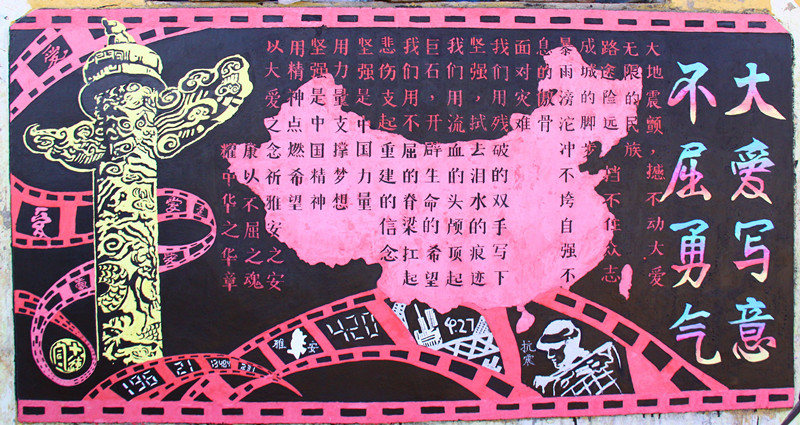 大爱写意
不屈勇气
大地震颤，撼不动大爱
无限的民族
路途险远 挡不住众志
成城的脚步
暴雨滂沱冲不垮自强不
息的傲骨
面对灾难
我们用残破的双手写下
坚强，拭去泪水的痕迹
我们用流血的头颅顶起
巨石，开辟生命的希望
我们用不屈的脊梁扛起
悲伤支起重建的信念
坚强是中国力量
用力量支撑梦想
坚强是中国精神
用精神点燃希望
以大爱之念祈雅安之安
康以不屈之魂
耀中华之华章
爱
爱
爱
爱
雅安
420
427
抗震
196 21 13484 231